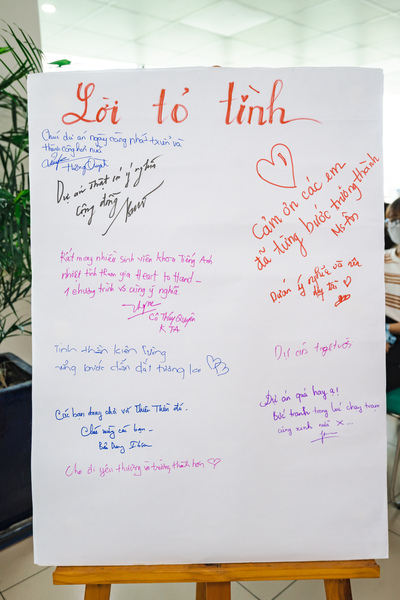 Lời tỏ tình
Chúc dự án ngày càng phát triển và
thành công hơn nữa
Dự án thật có ý nghĩa
cộng đồng
Cảm ơn các em
đã từng bước trưởng thành
Rất mong nhiều sinh viên khoa Tiếng Anh
nhiệt tình tham gia Heart to Hand -
1 chương trình vô cùng ý nghĩa.
Cô Thúy Quyên
K. TA
Dự án ý nghĩa và
Tinh thần kiên cường
từng bước dẫn dắt tương lai
Dự án tuyệt vời
Các bạn đang chữa về Thiên Thần đó -
Chúc mừng các bạn -
Dự án quá hay ạ!
Bức tranh trong lúc chạy trạm
cũng xinh nữa x...
Cho đi yêu thương và trưởng thành hơn ♡